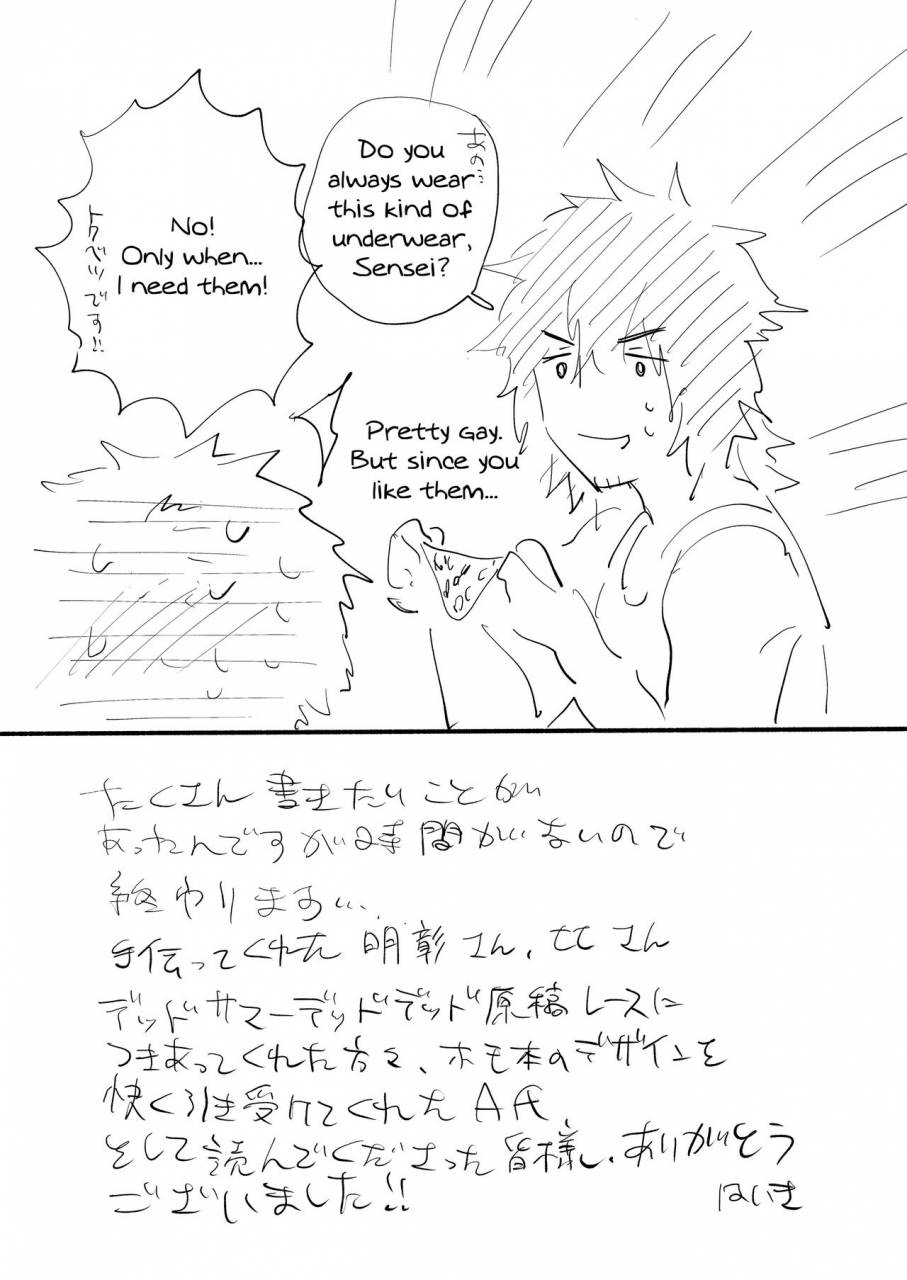 あの…
Do you
always wear
this kind of
underwear,
Sensei?
No!
Only when...
I need them!
トクベツです!!
Pretty gay.
But since you
like them...
たくさん書きたいことが
あったんですが時間がないので
終わります…
手伝ってくれた 明彰さん、ヒヒさん
デッドサマーデッドデッド原稿レースに
つきあってくれた方々、ホモ本のデザインを
快く引き受けてくれたA氏
そして読んでくださった皆様し、ありがとう
ございました!!
はいき